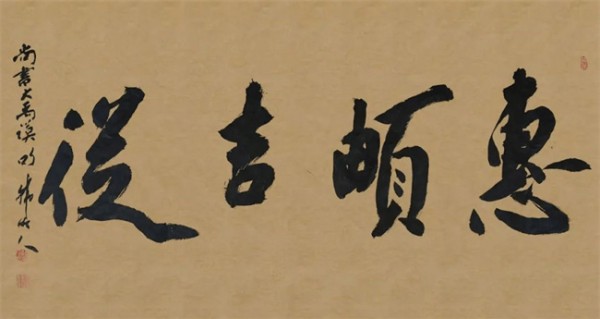 惠頔吉從
尚書大禹謨